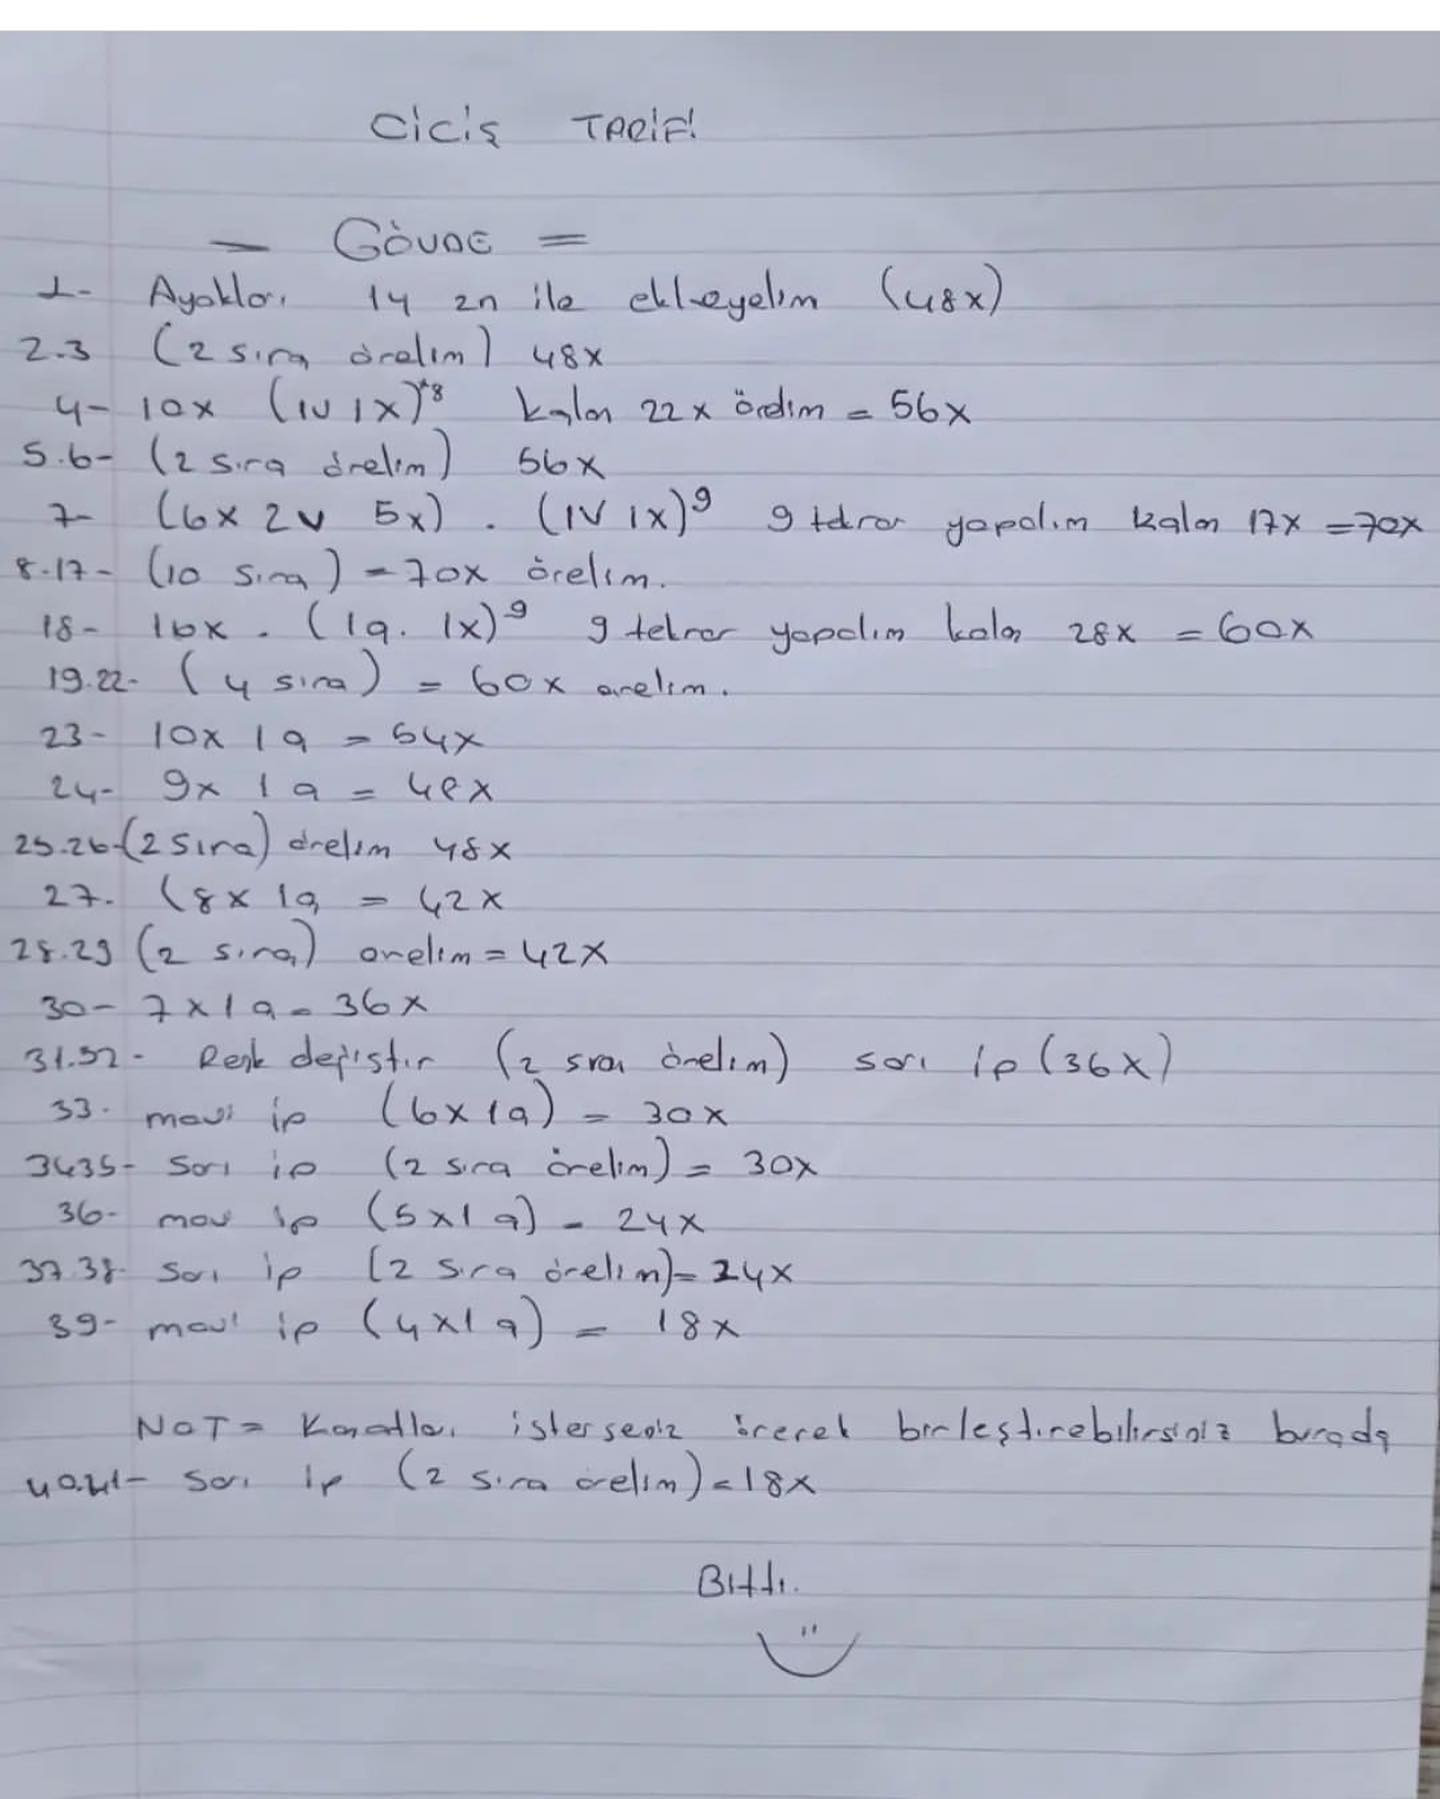 CİCİŞ TARİFİ
— GÖVDE =
1- Ayakları 14 zn ile ekleyelim (48x)
2.3 (2 sıra örelim) 48x
4- 10x (1V 1X)*8 kalan 22x ördim = 56x
5.6- (2 sıra örelim) 56x
7- (6x 2v 5x) . (1V 1X)9 9 tekrar yapalım kalan 17x = 70x
8.17- (10 sıra) = 70x örelim.
18- 16x . (1a. 1x)9 9 tekrar yapalım kalan 28x = 60x
19.22- (4 sıra) = 60x örelim.
23- 10x 1a = 54x
24- 9x 1a = 48x
25.26-(2 sıra) örelim 48x
27. (8x 1a = 42x
28.29 (2 sıra) örelim = 42x
30- 7x1a = 36x
31.32- Renk değiştir (2 sıra örelim) sarı ip (36x)
33. mavi ip (6x1a) = 30x
3435- Sarı ip (2 sıra örelim) = 30x
36- mavi ip (5x1a) = 24x
37.38- Sarı ip (2 sıra örelim)= 24x
39- mavi ip (4x1a) = 18x
NOT = Kanatları isterseniz örerek birleştirebilirsiniz burada
40.41- Sarı ip (2 sıra örelim) = 18x
Bitti.